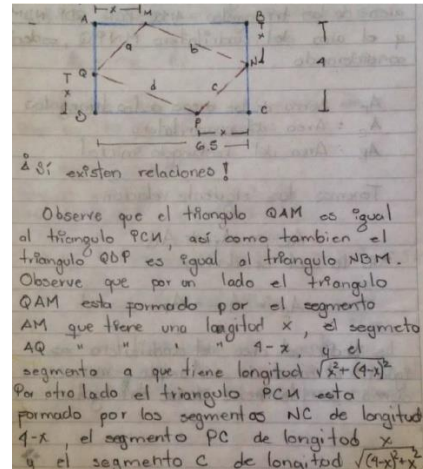 x
A M B
a b x
Q N
T x d c 4
D P C
x
6.5
¡ Sí existen relaciones !
Observe que el triangulo QAM es igual
al triangulo PCN, así como tambien el
triangulo QDP es igual al triangulo NBM.
Observe que por un lado el triangulo
QAM esta formado por el segmento
AM que tiene una longitud x, el segmeto
AQ " " " " 4-x, y el
segmento a que tiene longitud √x²+(4-x)²
Por otro lado el triangulo PCN esta
formado por los segmentos NC de longitud
4-x, el segmento PC de longitud x
y el segmento C de longitud √(4-x)²+x²